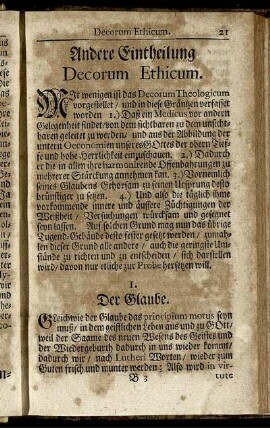 Decorum Ethicum. 21
Andere Eintheilung
Decorum Ethicum.
Mit wenigen ist das Decorum Theologicum
vorgestellet / und in diese Gräntzen verfasset
worden 1.) Daß ein Medicus vor andern
Gelegenheit findet / von dem sichtbaren zu dem unsicht-
baren geleitet zu werden / und aus der Abbildung der
untern Oeconomien unseres Gottes der obern Tief-
fe und hohe Herrlichkeit empfichet. 2.) Dadurch
er die in allen ihre harmonirende Offenbahrungen zu
mehrerer Stärckung annehmen kan. 3.) Vornemlich
seines Glaubens Gehorsam zu seinen Ursprung desto
brünstiger zu setzen. 4.) Und also die täglich ihme
vorkommende innere und äussere Züchtigungen der
Weißheit / Versuchungen würcksam und gesegnet
seyn lassen. Auf solchen Grund mag nun das übrige
Tugend-Gebäude desto fester gesetzt werden / zumah-
len dieser Grund alle andere / auch die geringste Um-
stände zu richten und zu entscheiden / sich darstellen
wird / davon nur etliche zur Probe hersetzen will.
1.
Der Glaube.
Gleichwie der Glaube das principium motus seyn
muß / in dem geistlichen Leben aus und zu GOtt /
weil der Saame des neuen Wesens des Geistes und
der Wiedergeburth dadurch in uns wieder kommt /
dadurch wir / nach Lutheri Worten / wieder zum
Guten frisch und munter werden; Also wird in vir-
B 3 tute